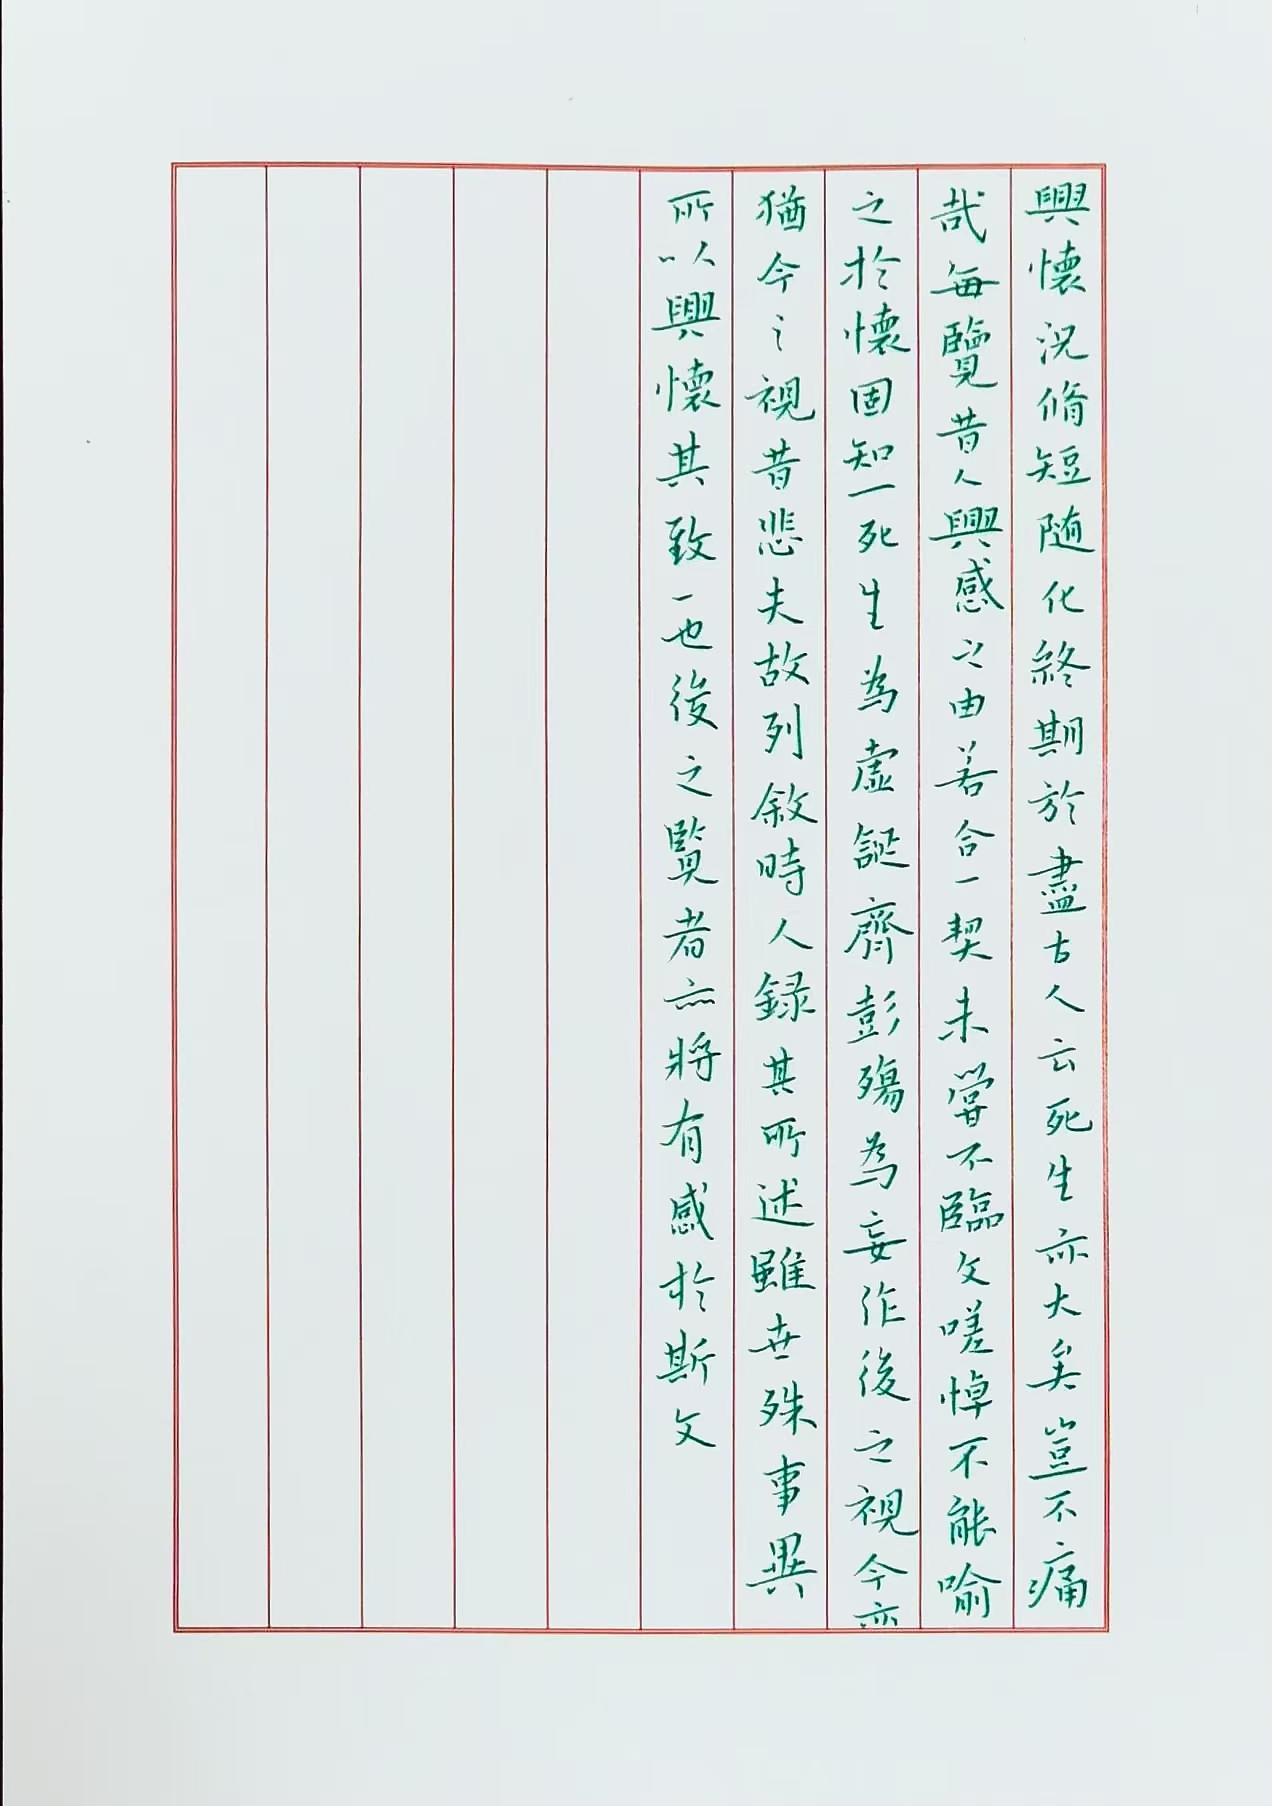 興懷況脩短隨化終期於盡古人云死生亦大矣豈不痛
哉每覽昔人興感之由若合一契未嘗不臨文嗟悼不能喻
之於懷固知一死生為虛誕齊彭殤為妄作後之視今亦
猶今之視昔悲夫故列敘時人錄其所述雖世殊事異
所以興懷其致一也後之覽者亦將有感於斯文